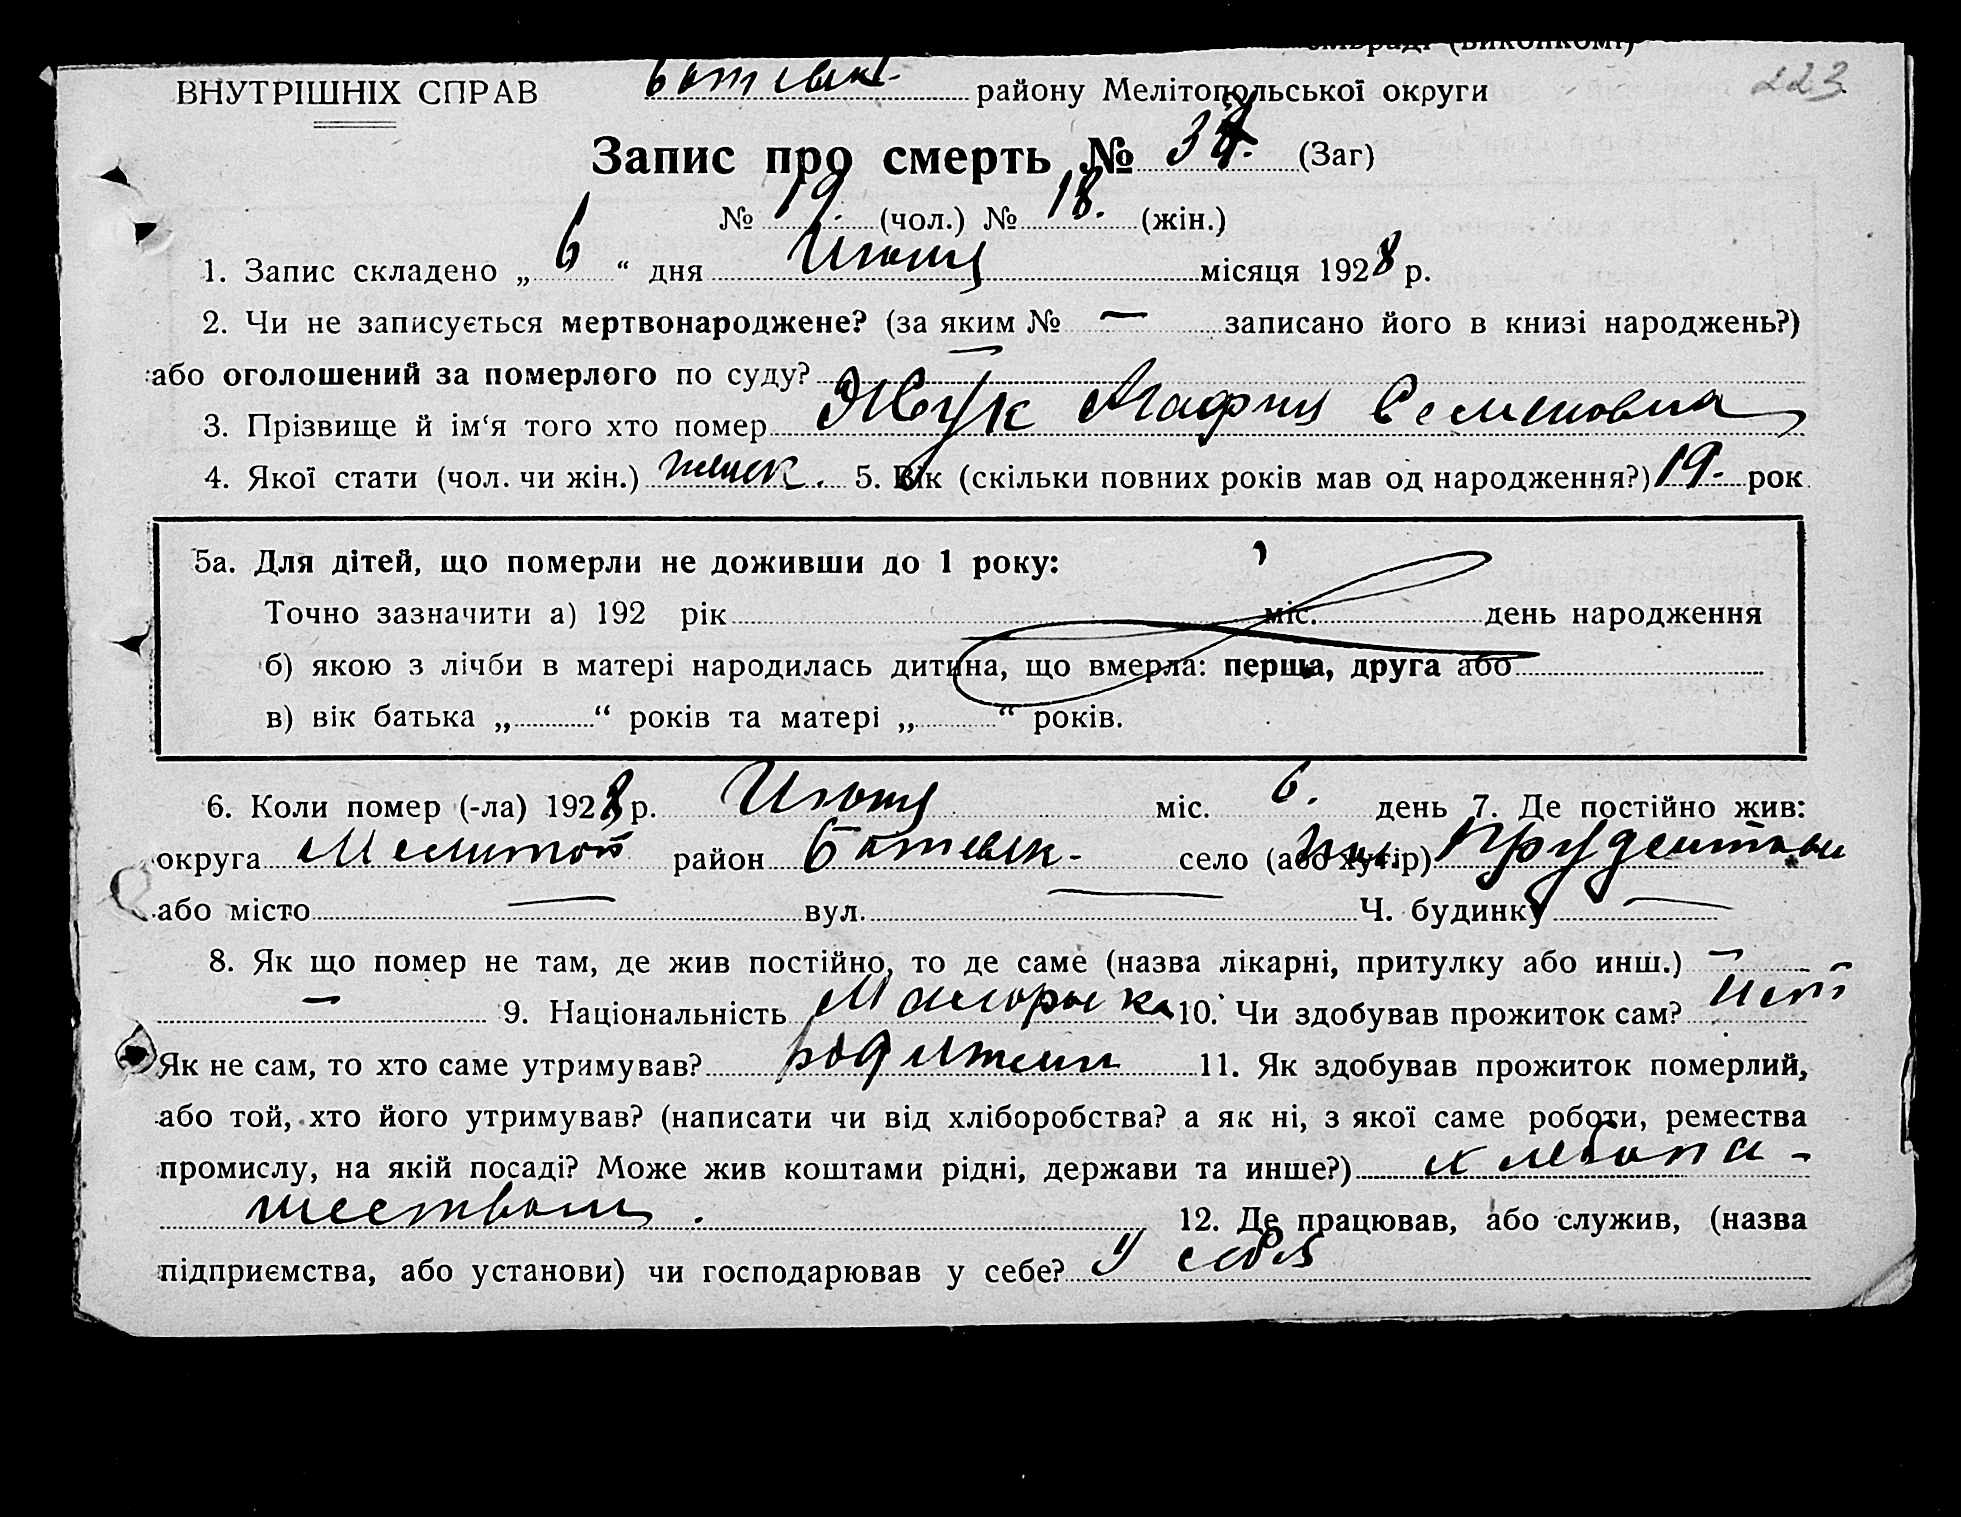 ВНУТРІШНІХ СПРАВ району Мелітопольської округи 223
Запис про смерть № (Заг)
№ 19. (чол.) № 18. (жін.)
1. Запис складено „ 6 “ дня Июня місяця 1928 р.
2. Чи не записується мертвонароджене? (за яким № — записано його в книзі народжень?)
або оголошений за померлого по суду? —
3. Прізвище й ім‘я того хто помер Жвук Агафия Семеновна
4. Якої стати (чол. чи жін.) женск. 5. Вік (скільки повних років мав од народження?) 19. рок
5а. Для дітей, що померли не доживши до 1 року:
Точно зазначити а) 192 рік міс. день народження
б) якою з лічби в матері народилась дитина, що вмерла: перша, друга або
в) вік батька „ “ років та матері „ “ років.
6. Коли помер (-ла) 1928 р. Июня міс. 6. день 7. Де постійно жив:
округа Мелитоп район Ботиевск- село (або хутір)
або місто — вул. — Ч. будинку —
8. Як що помер не там, де жив постійно, то де саме (назва лікарні, притулку або инш.) — –
— 9. Національність 10. Чи здобував прожиток сам? Нет
Як не сам, то хто саме утримував? родители 11. Як здобував прожиток померлий,
або той, хто його утримував? (написати чи від хліборобства? а як ні, з якої саме роботи, ремества
промислу, на якій посаді? Може жив коштами рідні, держави та инше?) хлебопа-
шеством. 12. Де працював, або служив, (назва
підприємства, або установи) чи господарював у себе? У себя